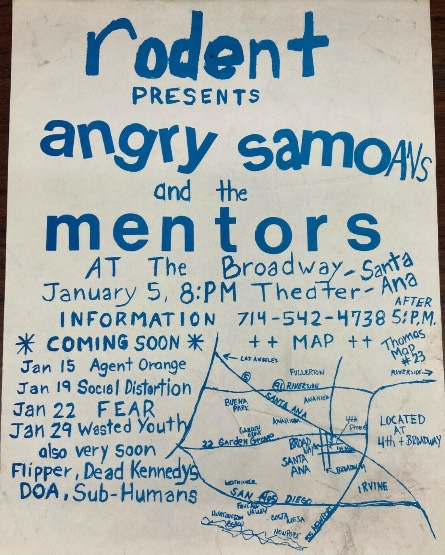 rodent
PRESENTS
angry samoANS
and the
mentors
AT The Broadway - Santa Ana
January 5, 8:PM Theater -
INFORMATION 714-542-4738 AFTER 5:P.M.
* COMING SOON * ++ MAP ++ Thomas Map #23
Jan 15 Agent Orange
Jan 19 Social Distortion
Jan 22 FEAR
Jan 29 Wasted Youth
also very soon
Flipper, Dead Kennedys
DOA, Sub-Humans
LOS ANGELES
RIVERSIDE
5
FULLERTON
91 RIVERSIDE
SANTA ANA
ANAHEIM
BUENA PARK
GARDEN GROVE
22 Garden Grove
4th Street
BROADWAY
SANTA ANA
BROADWAY
LOCATED AT 4th + BROADWAY
WESTMINSTER
SAN 405 DIEGO
IRVINE
FOUNTAIN VALLEY
HUNTINGTON BEACH
COSTA MESA
NEWPORT
55 NEWPORT